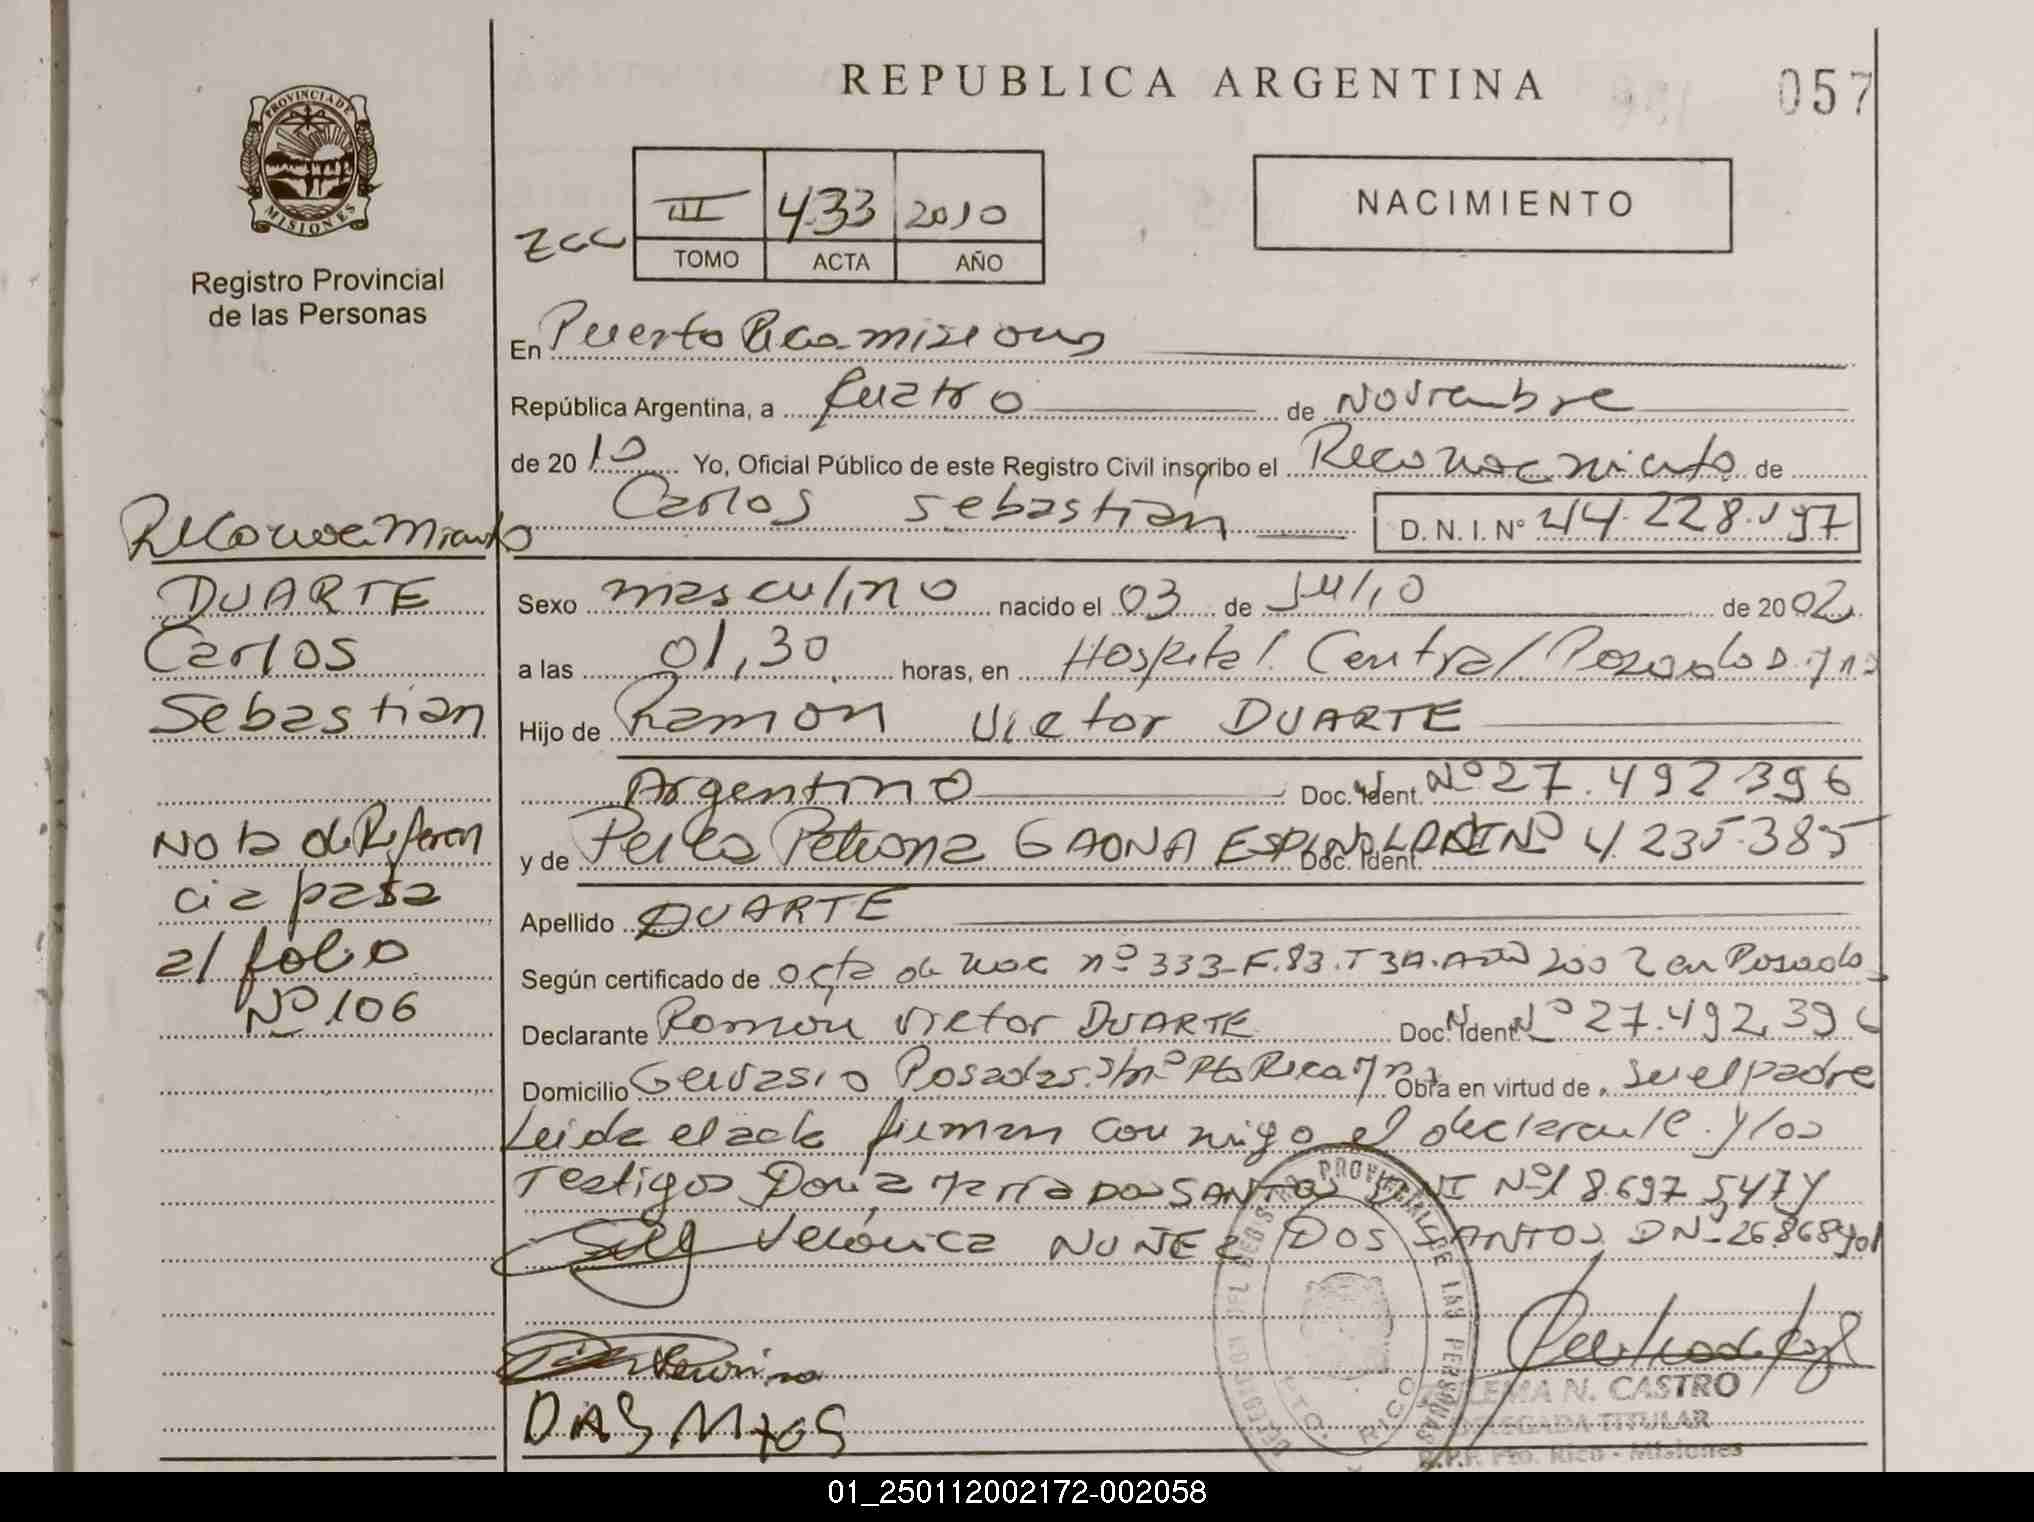 REPUBLICA ARGENTINA
057
PROVINCIA DE
MISIONES
Registro Provincial
de las Personas
III 433 2010
TOMO ACTA AÑO
NACIMIENTO
En Puerto Rico misiones
República Argentina, a cuatro de Noviembre
de 2010 Yo, Oficial Público de este Registro Civil inscribo el Reconocimiento de
Carlos Sebastián D.N.I. N° 44.228.197
Reconocimiento
DUARTE
Carlos
Sebastián
Nota de Referen
cia pasa
al folio
Nº 106
Sexo masculino nacido el 03 de Julio de 2002
a las 01,30 horas, en Hospital Central Posadas
Hijo de Ramón Victor DUARTE
Argentino Doc. Ident. Nº 27.492396
y de Perla Petrona GAONA ESPINOLA Doc. Ident. DNI Nº 4.235.385
Apellido DUARTE
Según certificado de acta de nac nº 333-F.83.T3A.Año 2002 en Posadas
Declarante Ramón Victor DUARTE Doc. Ident. Nº 27.492.396
Domicilio Gervasio Posadas s/nº Pto Rico Obra en virtud de ser el padre
Leida el acta firman conmigo el declarante y los
Testigos Doña María DOS SANTOS DNI Nº 18.697.547 y
Verónica NUÑEZ DOS SANTOS DNI 26.868901
DAS Mtos
REGISTRO PROVINCIAL DE LAS PERSONAS
PTO. RICO
ZULEMA N. CASTRO
DELEGADA TITULAR
R.P.P. Pto. Rico - Misiones
01_250112002172-002058